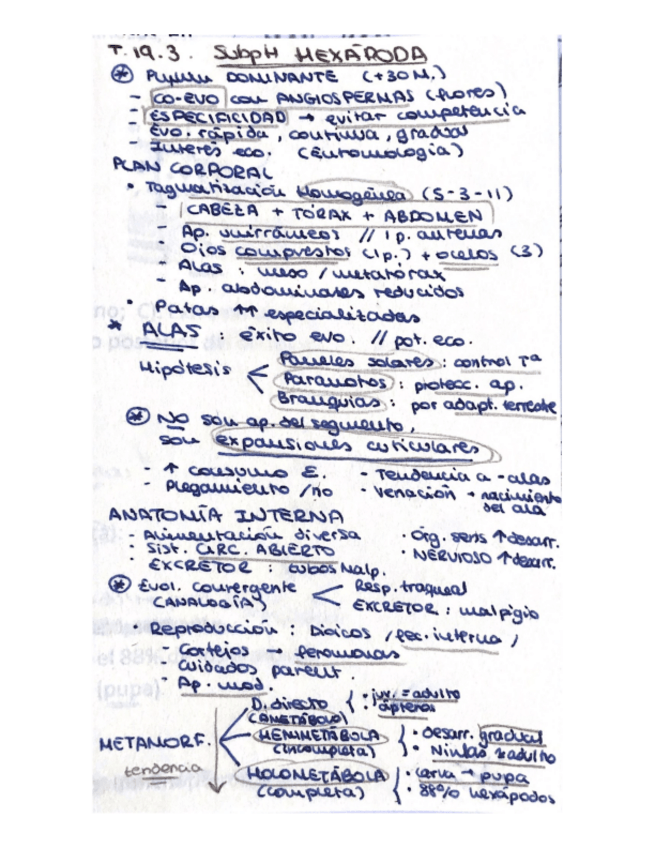 T.19.3. SubpH HEXÁPODA
* DOMINANTE (+30 M.)
- CO-EVO con ANGIOSPERMAS (flores)
- ESPECIFICIDAD → evitar competencia
- Evo. rápida, continua, gradual
- Interés eco. (Entomología)
PLAN CORPORAL
• Tagmatización Homogénea (5-3-11)
CABEZA + TÓRAX + ABDOMEN
- Ap. unirrámeos // 1p. antenas
- Ojos compuestos (1p.) + ocelos (3)
- Alas : meso / metatórax
- Ap. abdominales reducidos
• Patas ↑↑ especializadas
* ALAS : éxito evo. // pot. eco.
Hipótesis < Paneles solares : control Tª
Paranotos : protecc. ap.
Branquias : por adapt. terrestre
* NO son ap. del segmento,
son expansiones cuticulares
- ↑ consumo E. - Tendencia a - alas
- Plegamiento / no - Venación → nacimiento del ala
ANATOMÍA INTERNA
- Alimentación diversa • Org. sens ↑ desarr.
- Sist. CIRC. ABIERTO • NERVIOSO ↑ desarr.
- EXCRETOR : tubos Malp.
* Evol. convergente < Resp. traqueal
(ANALOGÍA) EXCRETOR : malpigio
- Reproducción : Dioicos / fec. interna /
- Cortejos → feromonas
- Cuidados parent.
- Ap. mod.
D. directo { • juv. = adulto
(AMETÁBOLO) • ápteros
METAMORF. < HEMIMETÁBOLA { • desarr. gradual
(incompleta) • Ninfas ≠ adulto
tendencia
HOLOMETÁBOLA { • Larva → pupa
(completa) • 88% hexápodos